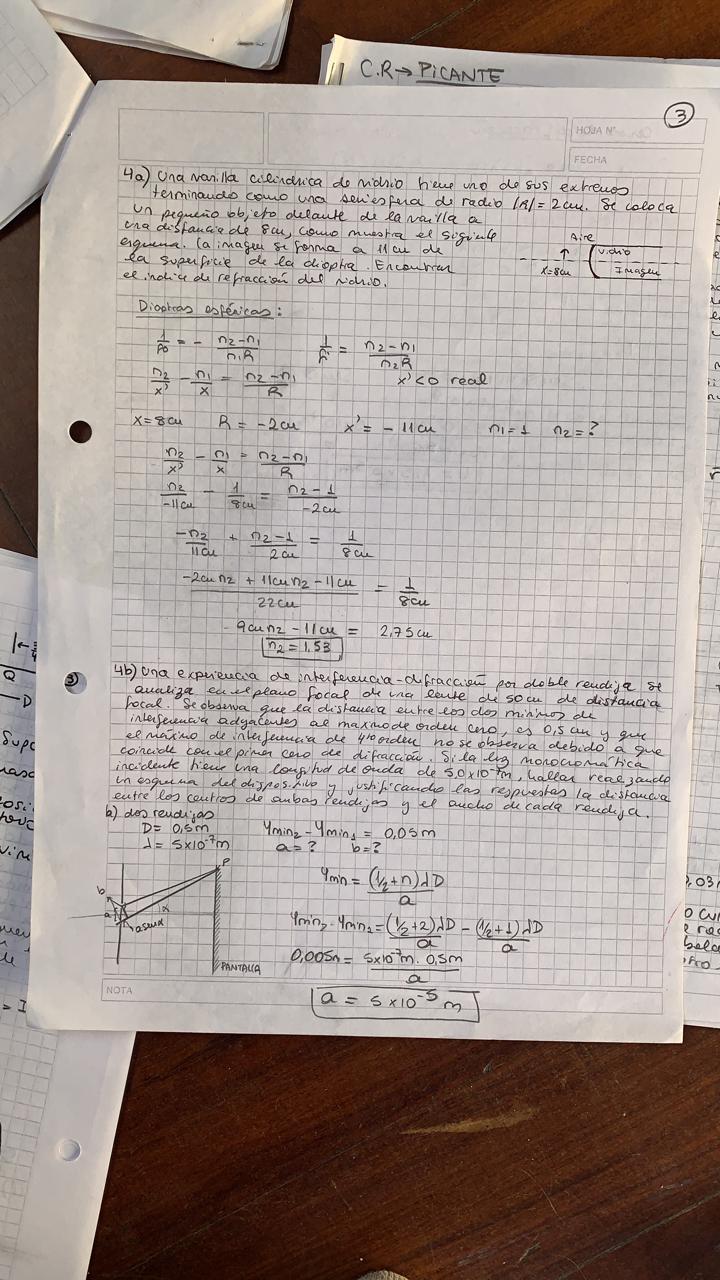 C.R→PICANTE
3
HOJA N°
FECHA
4a) Una varilla cilíndrica de vidrio tiene uno de sus extremos
terminando como una semiesfera de radio |R| = 2cm. Se coloca
un pequeño objeto delante de la varilla a
una distancia de 8cm, como muestra el siguiente
esquema. La imagen se forma a 11cm de
la superficie de la dioptra. Encontrar
el índice de refracción del vidrio.
Aire
vidrio
x=8cm
Imagen
Dioptras esféricas:
1/f0 = - n2-n1/n1R
1/f' = n2-n1/n2R
n2/x' - n1/x = n2-n1/R
x'<0 real
x=8cm R = -2cm x' = -11cm n1=1 n2=?
n2/x' - n1/x = n2-n1/R
n2/-11cm - 1/8cm = n2-1/-2cm
-n2/11cm + n2-1/2cm = 1/8cm
-2cm n2 + 11cm n2 - 11cm/22cm = 1/8cm
9cm n2 - 11cm = 2,75cm
n2 = 1,53
3)
4b) Una experiencia de interferencia-difracción por doble rendija se
analiza en el plano focal de una lente de 50cm de distancia
focal. Se observa que la distancia entre los dos mínimos de
interferencia adyacentes al maximo de orden cero, es 0,5cm y que
el máximo de interferencia de 4to orden no se observa debido a que
coincide con el primer cero de difracción. Si la luz monocromática
incidente tiene una longitud de onda de 5.0x10⁻⁷m, hallar realizando
un esquema del dispositivo y justificando las respuestas la distancia
entre los centros de ambas rendijas y el ancho de cada rendija.
b) dos rendijas
D= 0,5m Ymin2 - Ymin1 = 0,05m
λ= 5x10⁻⁷m a=? b=?
Ymin = (1/2+n)λD/a
P
b
a
α
a senα
PANTALLA
Ymin2 - Ymin1 = (1/2+2)λD/a - (1/2+1)λD/a
0,005m = 5x10⁻⁷m . 0,5m/a
NOTA
a = 5x10⁻⁵ m
Q
D